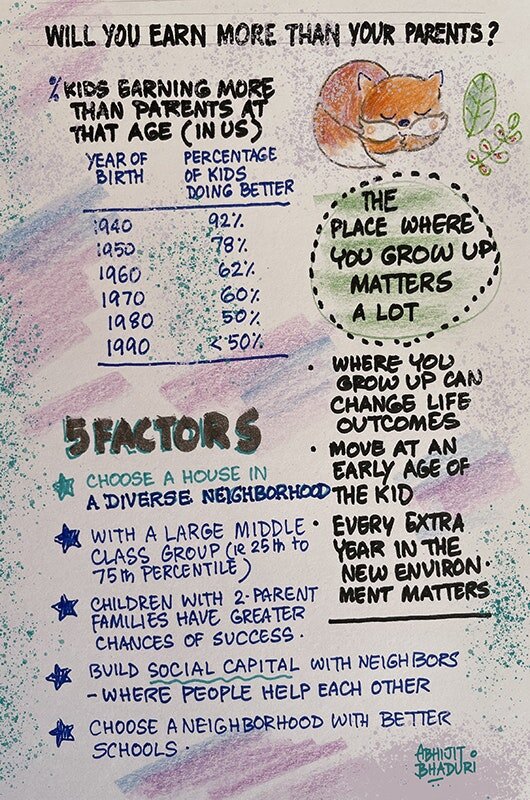 WILL YOU EARN MORE THAN YOUR PARENTS?
% KIDS EARNING MORE
THAN PARENTS AT
THAT AGE (IN US)
YEAR OF BIRTH PERCENTAGE OF KIDS DOING BETTER
1940 92%
1950 78%
1960 62%
1970 60%
1980 50%
1990 <50%
THE
PLACE WHERE
YOU GROW UP
MATTERS
A LOT
• WHERE YOU
GROW UP CAN
CHANGE LIFE
OUTCOMES
• MOVE AT AN
EARLY AGE OF
THE KID
• EVERY EXTRA
YEAR IN THE
NEW ENVIRON-
MENT MATTERS
5 FACTORS
CHOOSE A HOUSE IN
A DIVERSE NEIGHBORHOOD
WITH A LARGE MIDDLE
CLASS GROUP (ie 25th to
75th PERCENTILE)
CHILDREN WITH 2-PARENT
FAMILIES HAVE GREATER
CHANCES OF SUCCESS.
BUILD SOCIAL CAPITAL WITH NEIGHBORS
- WHERE PEOPLE HELP EACH OTHER
CHOOSE A NEIGHBORHOOD WITH BETTER
SCHOOLS.
ABHIJIT
BHADURI